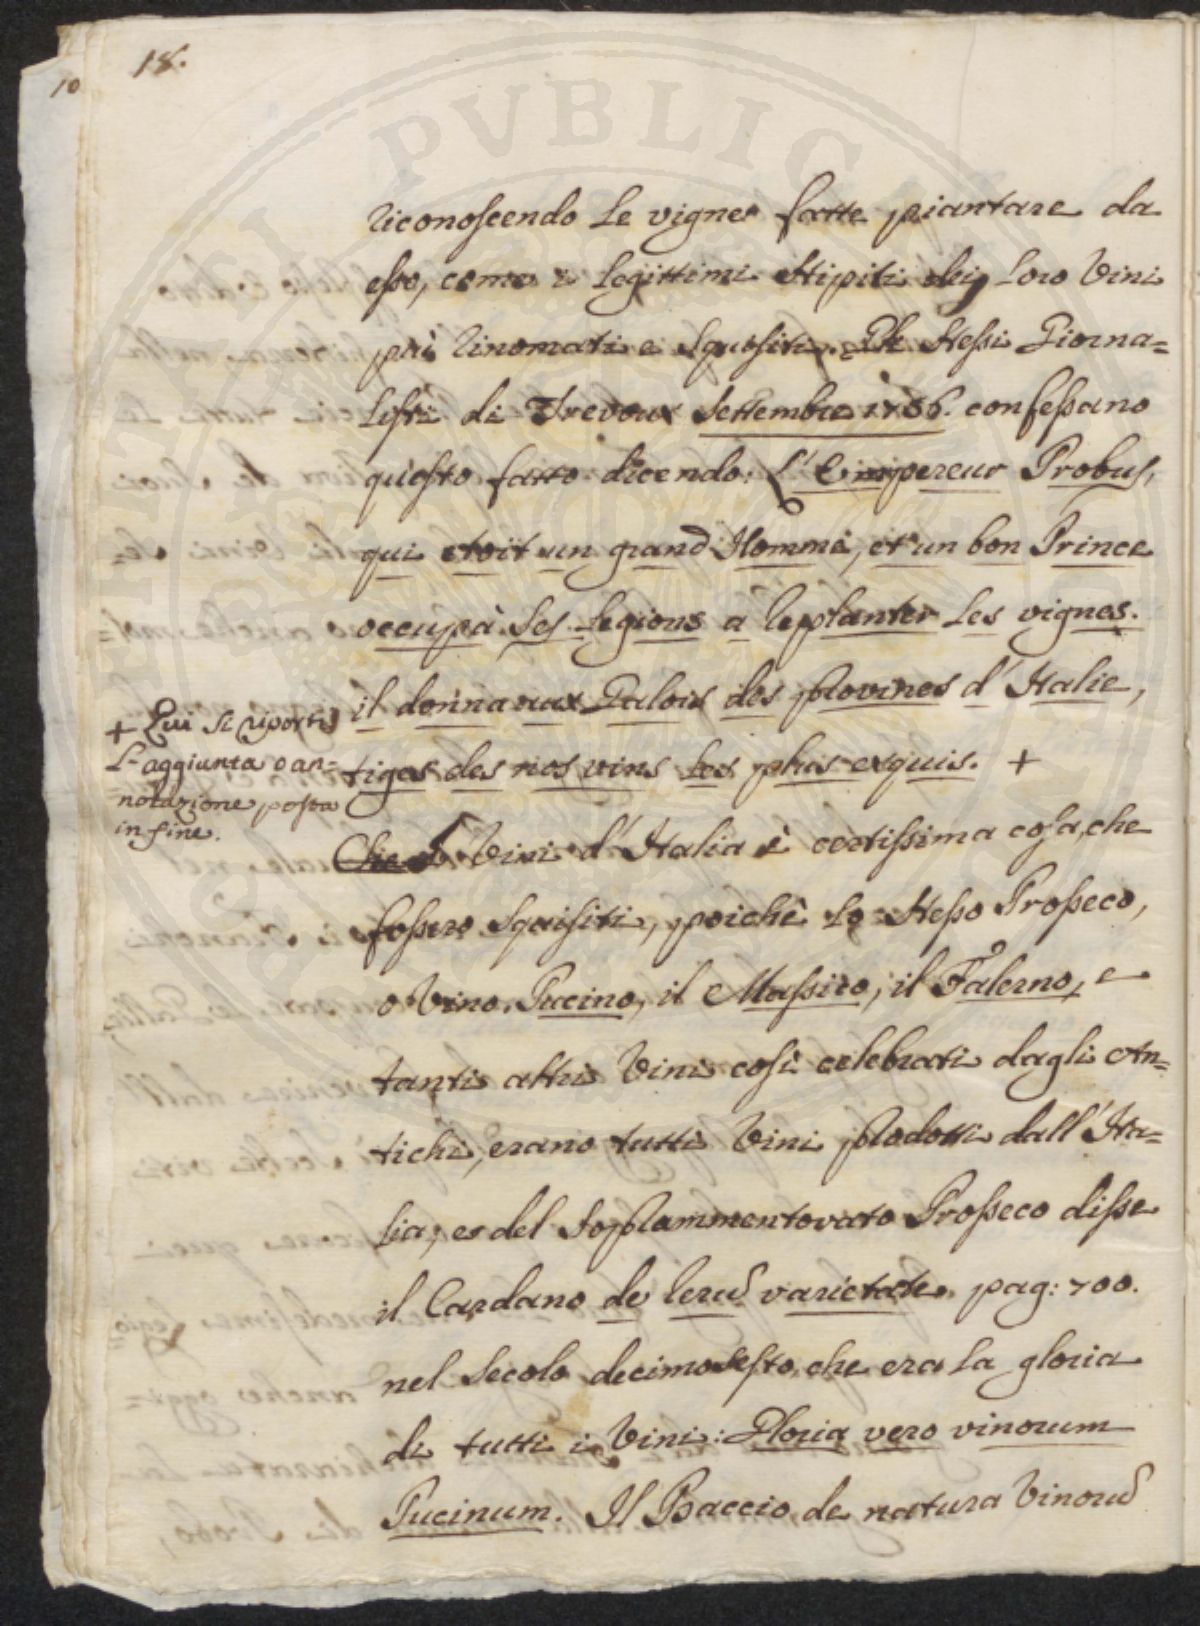 18.
10
riconoscendo le vigne fatte piantare da
esso, come i legittimi stipiti dei loro Vini
più rinomati e squositi. Gli stessi Giorna=
listi di Trevoux Settembre 1756. confessano
questo fatto dicendo: L'Empereur Probus,
qui etoit un grand Homme, et un bon Prince
occupà ses legions a replanter les vignes.
il donna aux Galois des provines d'Italie,
tiges des nos vins les plus exquis. +
+ Qui si riporti
l'aggiunta o an=
notazione posta
in fine.
Che i Vini d'Italia è certissima cosa, che
fossero squisiti, poichè lo stesso Prosseco,
o Vino Pucino, il Massico, il Falerno, e
tanti altri Vini così celebrati dagli An=
tichi, erano tutti Vini prodotti dall'Ita=
lia, e del soprammentovato Prosseco disse
il Cardano de rerum varietate pag: 700.
nel secolo decimosesto, che era la gloria
di tutti i Vini: Gloria vero vinorum
Pucinum. Il Baccio de natura Vinorum